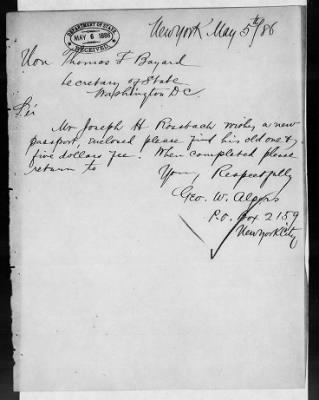 New York May 5th/86
DEPARTMENT OF STATE
MAY 6 1886
RECEIVED
Hon Thomas F Bayard
Secretary of State
Washington DC
Sir
Mr Joseph H Rossbach wishes a new
passport, enclosed please find his old one &
five dollars fee. When completed please
return to
Yours Respectfully
Geo. W. Algers
P.O. Box 2159
New York City